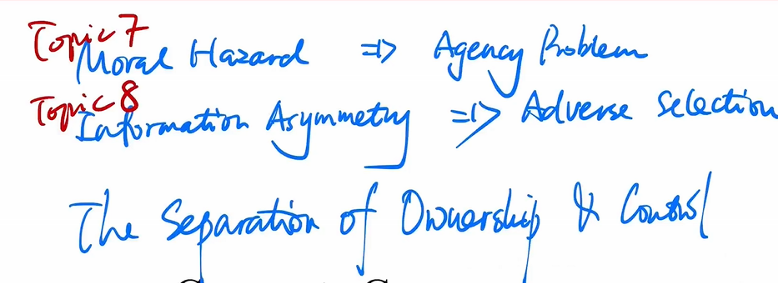 Topic 7
Moral Hazard => Agency Problem
Topic 8
Information Asymmetry => Adverse Selection
The Separation of Ownership & Control